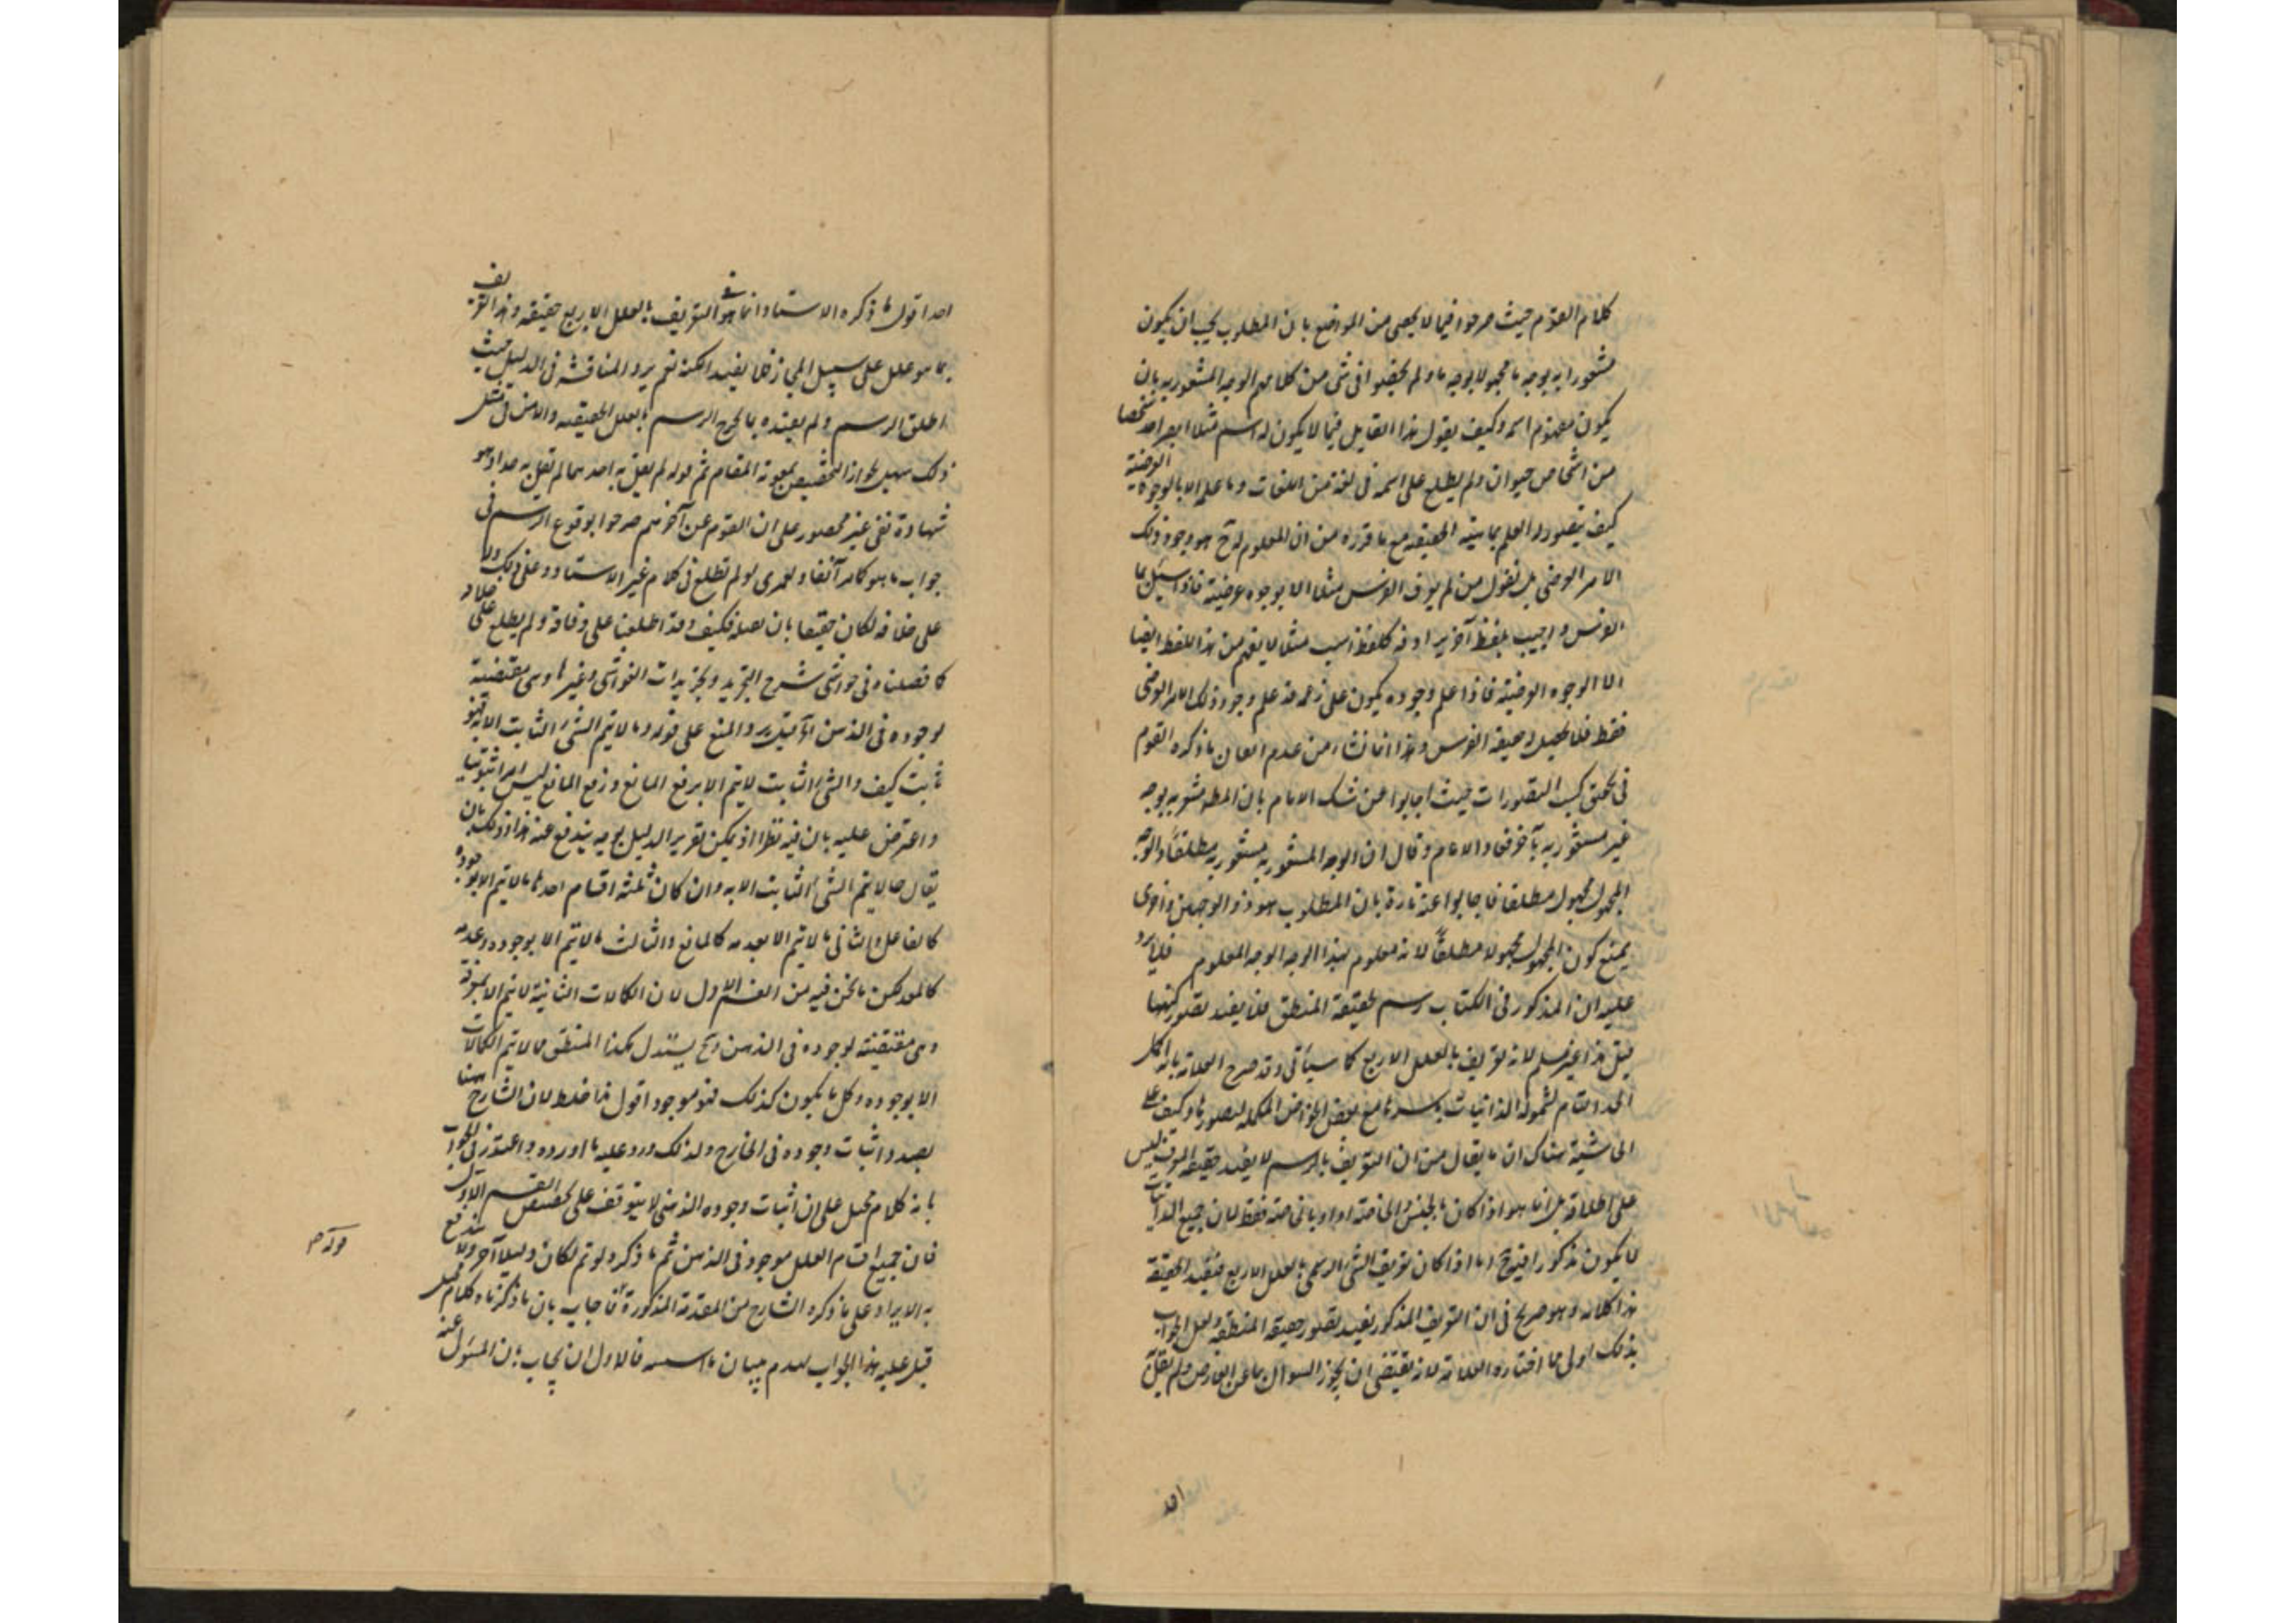 كلام القوم حيث صرحوا فيما لا يحصى من المواضع بان المطلوب يجب ان يكون
مشعورا به بوجه ما مجهولا بوجه ما ولم يخصوا فى شئ من كلامهم الوجه المشعور به بان
يكون مفهوم اسمه وكيف يقول هذا القايل فيما لا يكون له اسم مثلا ابصر احد شخصا
من اشخاص حيوان ولم يطلع على اسمه فى لغة من اللغات وما علمه الا بالوجوه العرضية
كيف يتصور له العلم بماهيته الحقيقة مع ما قرره من ان المعلوم له ح هو وجود ذلك
الامر العرضى بل نقول من لم يعرف الفرس مثلا الا بوجوه عرضية فاذا سئل بما
الفرس واجيب بلفظ آخر يرادفه كلفظ اسب مثلا لا يفهم من هذا اللفظ ايضا
الا الوجوه العرضية فاذا علم وجوده يكون على زعمه قد علم وجود ذلك الامر العرضى
فقط فلا يحصل له حقيقة الفرس وهذا انما نشاء من عدم امعان ما ذكره القوم
فى تحقق كسب التصورات حيث اجابوا عن شك الامام بان المط مشعور به بوجه
غير مشعور به بآخر فعاد الامام وقال ان الوجه المشعور به مشعور به مطلقا والوجه
المجهول مجهول مطلقا فاجابوا عنه تارة بان المطلوب هو ذو الوجهين واخرى
بمنع كون المجهول مجهولا مطلقاً لانه معلوم بهذا الوجه الوجه المعلوم فلا يرد
عليه ان المذكور فى الكتاب رسم لحقيقة المنطق فلا يفيد تصور كنهها
قيل هذا غير مسلم لانه تعريف بالعلل الاربع كما سيأتى وقد صرح العلامة بانه اكمل
الحد التام لشموله الذاتيات باسرها مع بعض الخواص المكملة لتصورها وكيف على
الحاشية هناك ان ما يقال من ان التعريف بالرسم لا يفيد حقيقة المعرف ليس
على اطلاقه بل انما هو اذا كان بالجنس والخاصة او بالخاصة فقط لان جميع الذاتيات
لا يكون مذكورا فيه ح اما اذا كان تعريف الشئ الرسمى بالعلل الاربع فيفيد الحقيقة
هذا كلامه وهو صريح فى ان التعريف المذكور يفيد تصور حقيقة المنطق ولعل الجواب
بذلك اولى مما اختاره العلامة لانه يقتضى ان يجوز السوال بما عن العارض ولم يقل به
احد
احد اقول ما ذكره الاستاد انما هو فى التعريف بالعلل الاربع حقيقة وهذا التعريف
بما هو علل على سبيل المجاز فلا يفيد الكنه نعم يرد المناقشة فى الدليل حيث
اطلق الرسم ولم يقيده بما يخرج الرسم بالعلل الحقيقة والامر فى مثل
ذلك سهل لجواز التخصيص بمعونة المقام ثم قوله لم يقل به احد مما لم يقل به احد وهو
شهادة نفى غير محصور على ان القوم عن آخرهم صرحوا بوقوع الرسم فى
جواب ما هو كما مر آنفا ولعمرى لو لم تطلع فى كلام غير الاستاد على ذلك ولا
على خلافه لكان حقيقا بان نقبله فكيف وقد اطلعنا على وفاقه ولم يطلع على خلافه
كما فصلناه فى حواشى شرح التجريد وتجريدات الغواشى وغيرها وهى مقتضية
لوجوده فى الذهن يرد المنع على قوله وما لا يتم الشئ الثابت الا به فهو
ثابت كيف والشئ الثابت لا يتم الا برفع المانع ورفع المانع ليس امرا ثبوتيا
واعترض عليه بان فيه نظرا اذ يمكن تقرير الدليل بوجه يندفع عنه هذا وذلك بان
يقال ما لا يتم الشئ الثابت الا به وان كان ثلثة اقسام احدها ما لا يتم الا بوجوده
كالفاعل والثانى ما لا يتم الا بعدمه كالمانع والثالث ما لا يتم الا بوجوده وعدمه
كالمعد لكن ما نحن فيه من القسم الاول لان الكمالات الثانية لا يتم الا بمعرفته
وهى مقتضية لوجوده فى الذهن وح يستدل هكذا المنطق ما لا يتم الكمالات
الا بوجوده وكل ما يكون كذلك فهو موجود اقول هذا خلط لان الشارح ههنا
بصدد اثبات وجوده فى الخارج ولذلك ورد عليه ما اورده واعتذر فى الجواب
بانه كلام مخيل على ان اثبات وجوده الذهنى لا يتوقف على تخصيص القسم الاول
فان جميع اقسام العلل موجود فى الذهن ثم ما ذكره لو تم لكان دليلا آخر ولا يندفع
به الايراد على ما ذكره الشارح من المقدمة المذكورة فاجاب بان ما ذكرناه كلام مخيل
قيل عليه هذا الجواب لهدم بنيان ما اسسه فالاولى ان يجاب بان المسئول عنه
قوله م